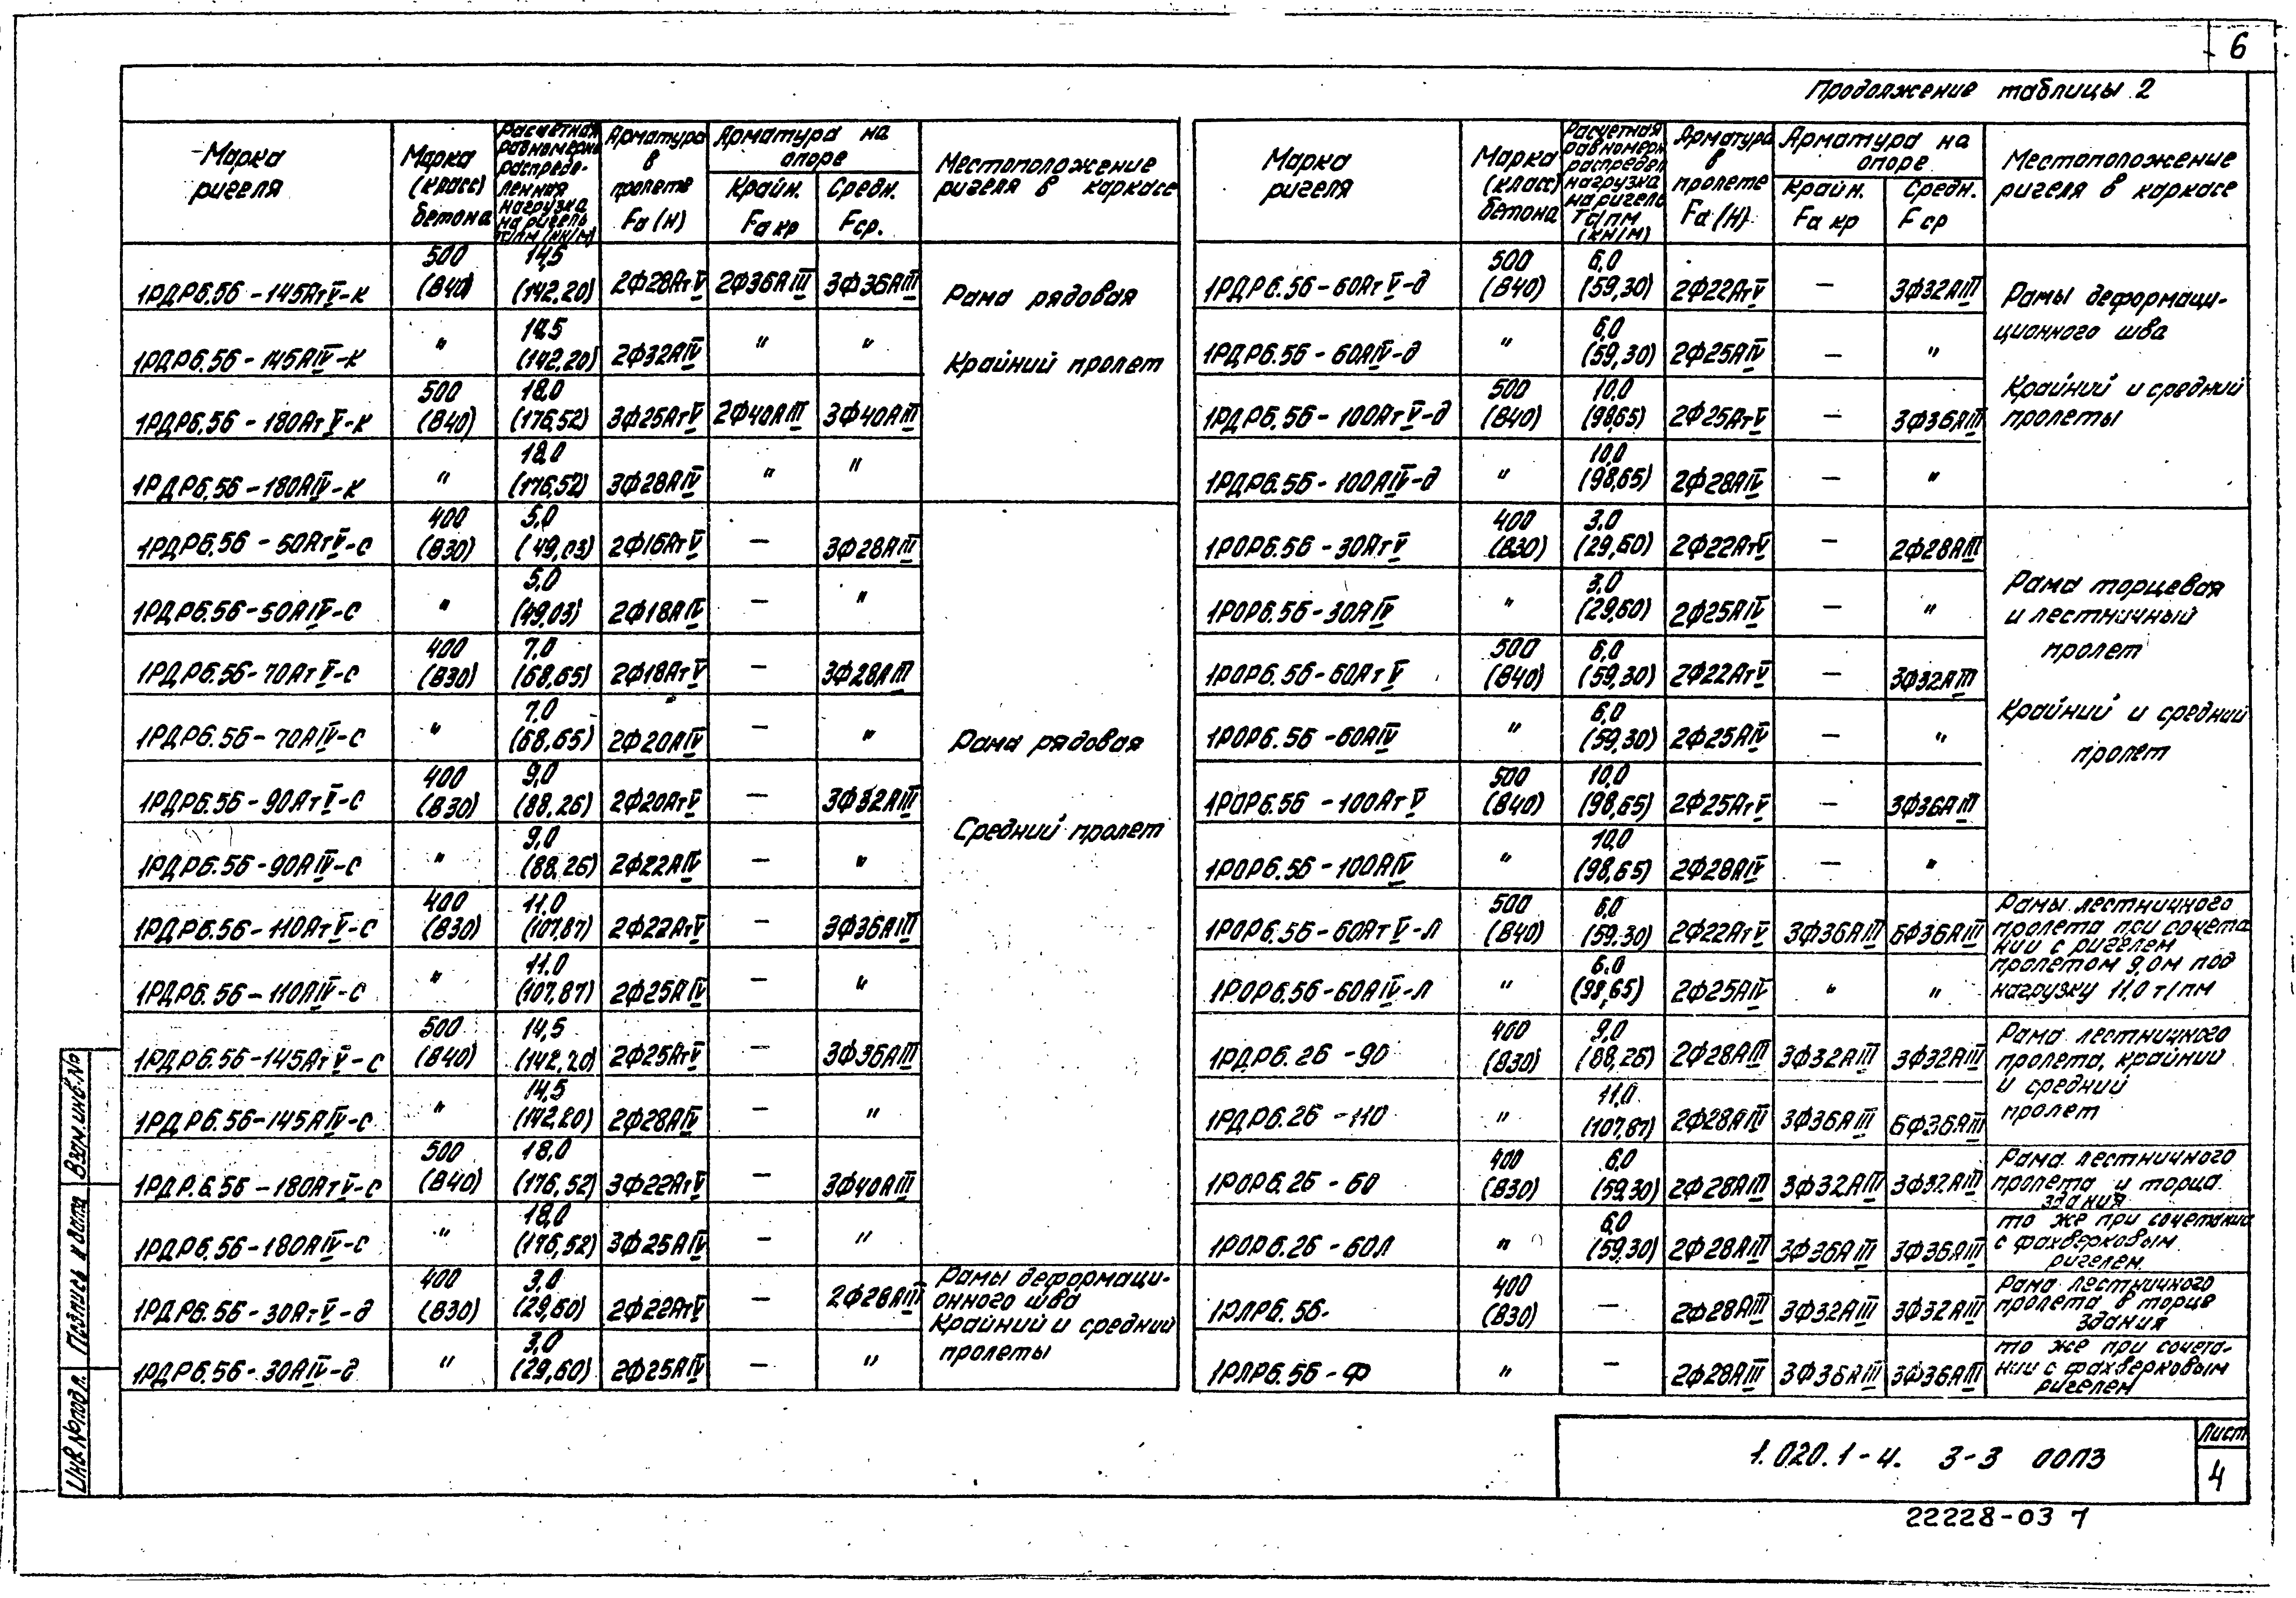 6
Продолжение таблицы 2
Марка ригеля | Марка (класс) бетона | Расчетная равномерно распределенная нагрузка на ригель т/пм (кн/м) | Арматура в пролете Fа (Н) | Арматура на опоре Крайн. Fа кр | Средн. Fср. | Местоположение ригеля в каркасе
1РДР6.56-145АтV-к | 500 (В40) | 14,5 (142,20) | 2ф28АтV | 2ф36АIII | 3ф36АIII | Рама рядовая
1РДР6.56-145АIV-к | " | 14,5 (142,20) | 2ф32АIV | " | " | Крайний пролет
1РДР6.56-180АтV-к | 500 (В40) | 18,0 (176,52) | 3ф25АтV | 2ф40АIII | 3ф40АIII
1РДР6.56-180АIV-к | " | 18,0 (176,52) | 3ф28АIV | " | "
1РДР6.56-50АтV-с | 400 (В30) | 5,0 (49,03) | 2ф16АтV | — | 3ф28АIII
1РДР6.56-50АIV-с | " | 5,0 (49,03) | 2ф18АIV | — | "
1РДР6.56-70АтV-с | 400 (В30) | 7,0 (68,65) | 2ф18АтV | — | 3ф28АIII
1РДР6.56-70АIV-с | " | 7,0 (68,65) | 2ф20АIV | — | " | Рама рядовая
1РДР6.56-90АтV-с | 400 (В30) | 9,0 (88,26) | 2ф20АтV | — | 3ф32АIII | Средний пролет
1РДР6.56-90АIV-с | " | 9,0 (88,26) | 2ф22АIV | — | "
1РДР6.56-110АтV-с | 400 (В30) | 11.0 (107,87) | 2ф22АтV | — | 3ф36АIII
1РДР6.56-110АIV-с | " | 11.0 (107,87) | 2ф25АIV | — | "
1РДР6.56-145АтV-с | 500 (В40) | 14,5 (142,20) | 2ф25АтV | — | 3ф36АIII
1РДР6.56-145АIV-с | " | 14,5 (142,20) | 2ф28АIV | — | "
1РДР.6.56-180АтV-с | 500 (В40) | 18,0 (176,52) | 3ф22АтV | — | 3ф40АIII
1РДР6.56-180АIV-с | " | 18,0 (176,52) | 3ф25АIV | — | "
1РДР6.56-30АтV-д | 400 (В30) | 3,0 (29,60) | 2ф22АтV | — | 2ф28АIII | Рамы деформационного шва
1РДР6.56-30АIV-д | " | 3,0 (29,60) | 2ф25АIV | — | " | Крайний и средний пролеты
Марка ригеля | Марка (класс) бетона | Расчетная равномерн распредел нагрузка на ригель тс/пм (кн/м) | Арматура в пролете Fа (Н) | Арматура на опоре Крайн. Fа кр | Средн. Fср | Местоположение ригеля в каркасе
1РДР6.56-60АтV-д | 500 (В40) | 6,0 (59,30) | 2ф22АтV | — | 3ф32АIII | Рамы деформаци-
1РДР6.56-60АIV-д | " | 6,0 (59,30) | 2ф25АIV | — | " | ционного шва
1РДР6.56-100АтV-д | 500 (В40) | 10,0 (98,65) | 2ф25АтV | — | 3ф36АIII | Крайний и средний пролеты
1РДР6.56-100АIV-д | " | 10,0 (98,65) | 2ф28АIV | — | "
1РОР6.56-30АтV | 400 (В30) | 3.0 (29,60) | 2ф22АтV | — | 2ф28АIII
1РОР6.56-30АIV | " | 3,0 (29,60) | 2ф25АIV | — | " | Рама торцевая и лестничный
1РОР6.56-60АтV | 500 (В40) | 6,0 (59,30) | 2ф22АтV | — | 3ф32АIII | пролет
1РОР6.56-60АIV | " | 6,0 (59,30) | 2ф25АIV | — | " | Крайний и средний пролет
1РОР6.56-100АтV | 500 (В40) | 10,0 (98,65) | 2ф25АтV | — | 3ф36АIII
1РОР6.56-100АIV | " | 10,0 (98,65) | 2ф28АIV | — | "
1РОР6.56-60АтV-Л | 500 (В40) | 6,0 (59.30) | 2ф22АтV | 3ф36АIII | 6ф36АIII | Рамы лестничного пролета при сочета нии с ригелем
1РОР6.56-60АIV-Л | " | 6.0 (98,65) | 2ф25АIV | " | " | пролетом 9,0м под нагрузку 11.0 т/пм
1РДР6.26-90 | 400 (В30) | 9,0 (88,26) | 2ф28АIII | 3ф32АIII | 3ф32АIII | Рама лестничного пролета, крайний
1РДР6.26-110 | " | 11,0 (107,87) | 2ф28АIII | 3ф36АIII | 6ф36АIII | и средний пролет
1РОР6.26-60 | 400 (В30) | 6,0 (59,30) | 2ф28АIII | 3ф32АIII | 3ф32АIII | Рама лестничного пролета и торца здания
1РОР6.26-60Л | " | 6,0 (59,30) | 2ф28АIII | 3ф36АIII | 3ф36АIII | то же при сочетании с фахверковым ригелем
1РЛР6.56- | 400 (В30) | — | 2ф28АIII | 3ф32АIII | 3ф32АIII | Рама лестничного пролета в торце здания
1РЛР6.56-Ф | " | — | 2ф28АIII | 3ф36АIII | 3ф36АIII | то же при сочета- нии с фахверковым ригелем
Инв.№подл. Подпись и дата Взам.инв.№
1.020.1-4. 3-3 00ПЗ
Лист
4
22228-03 7